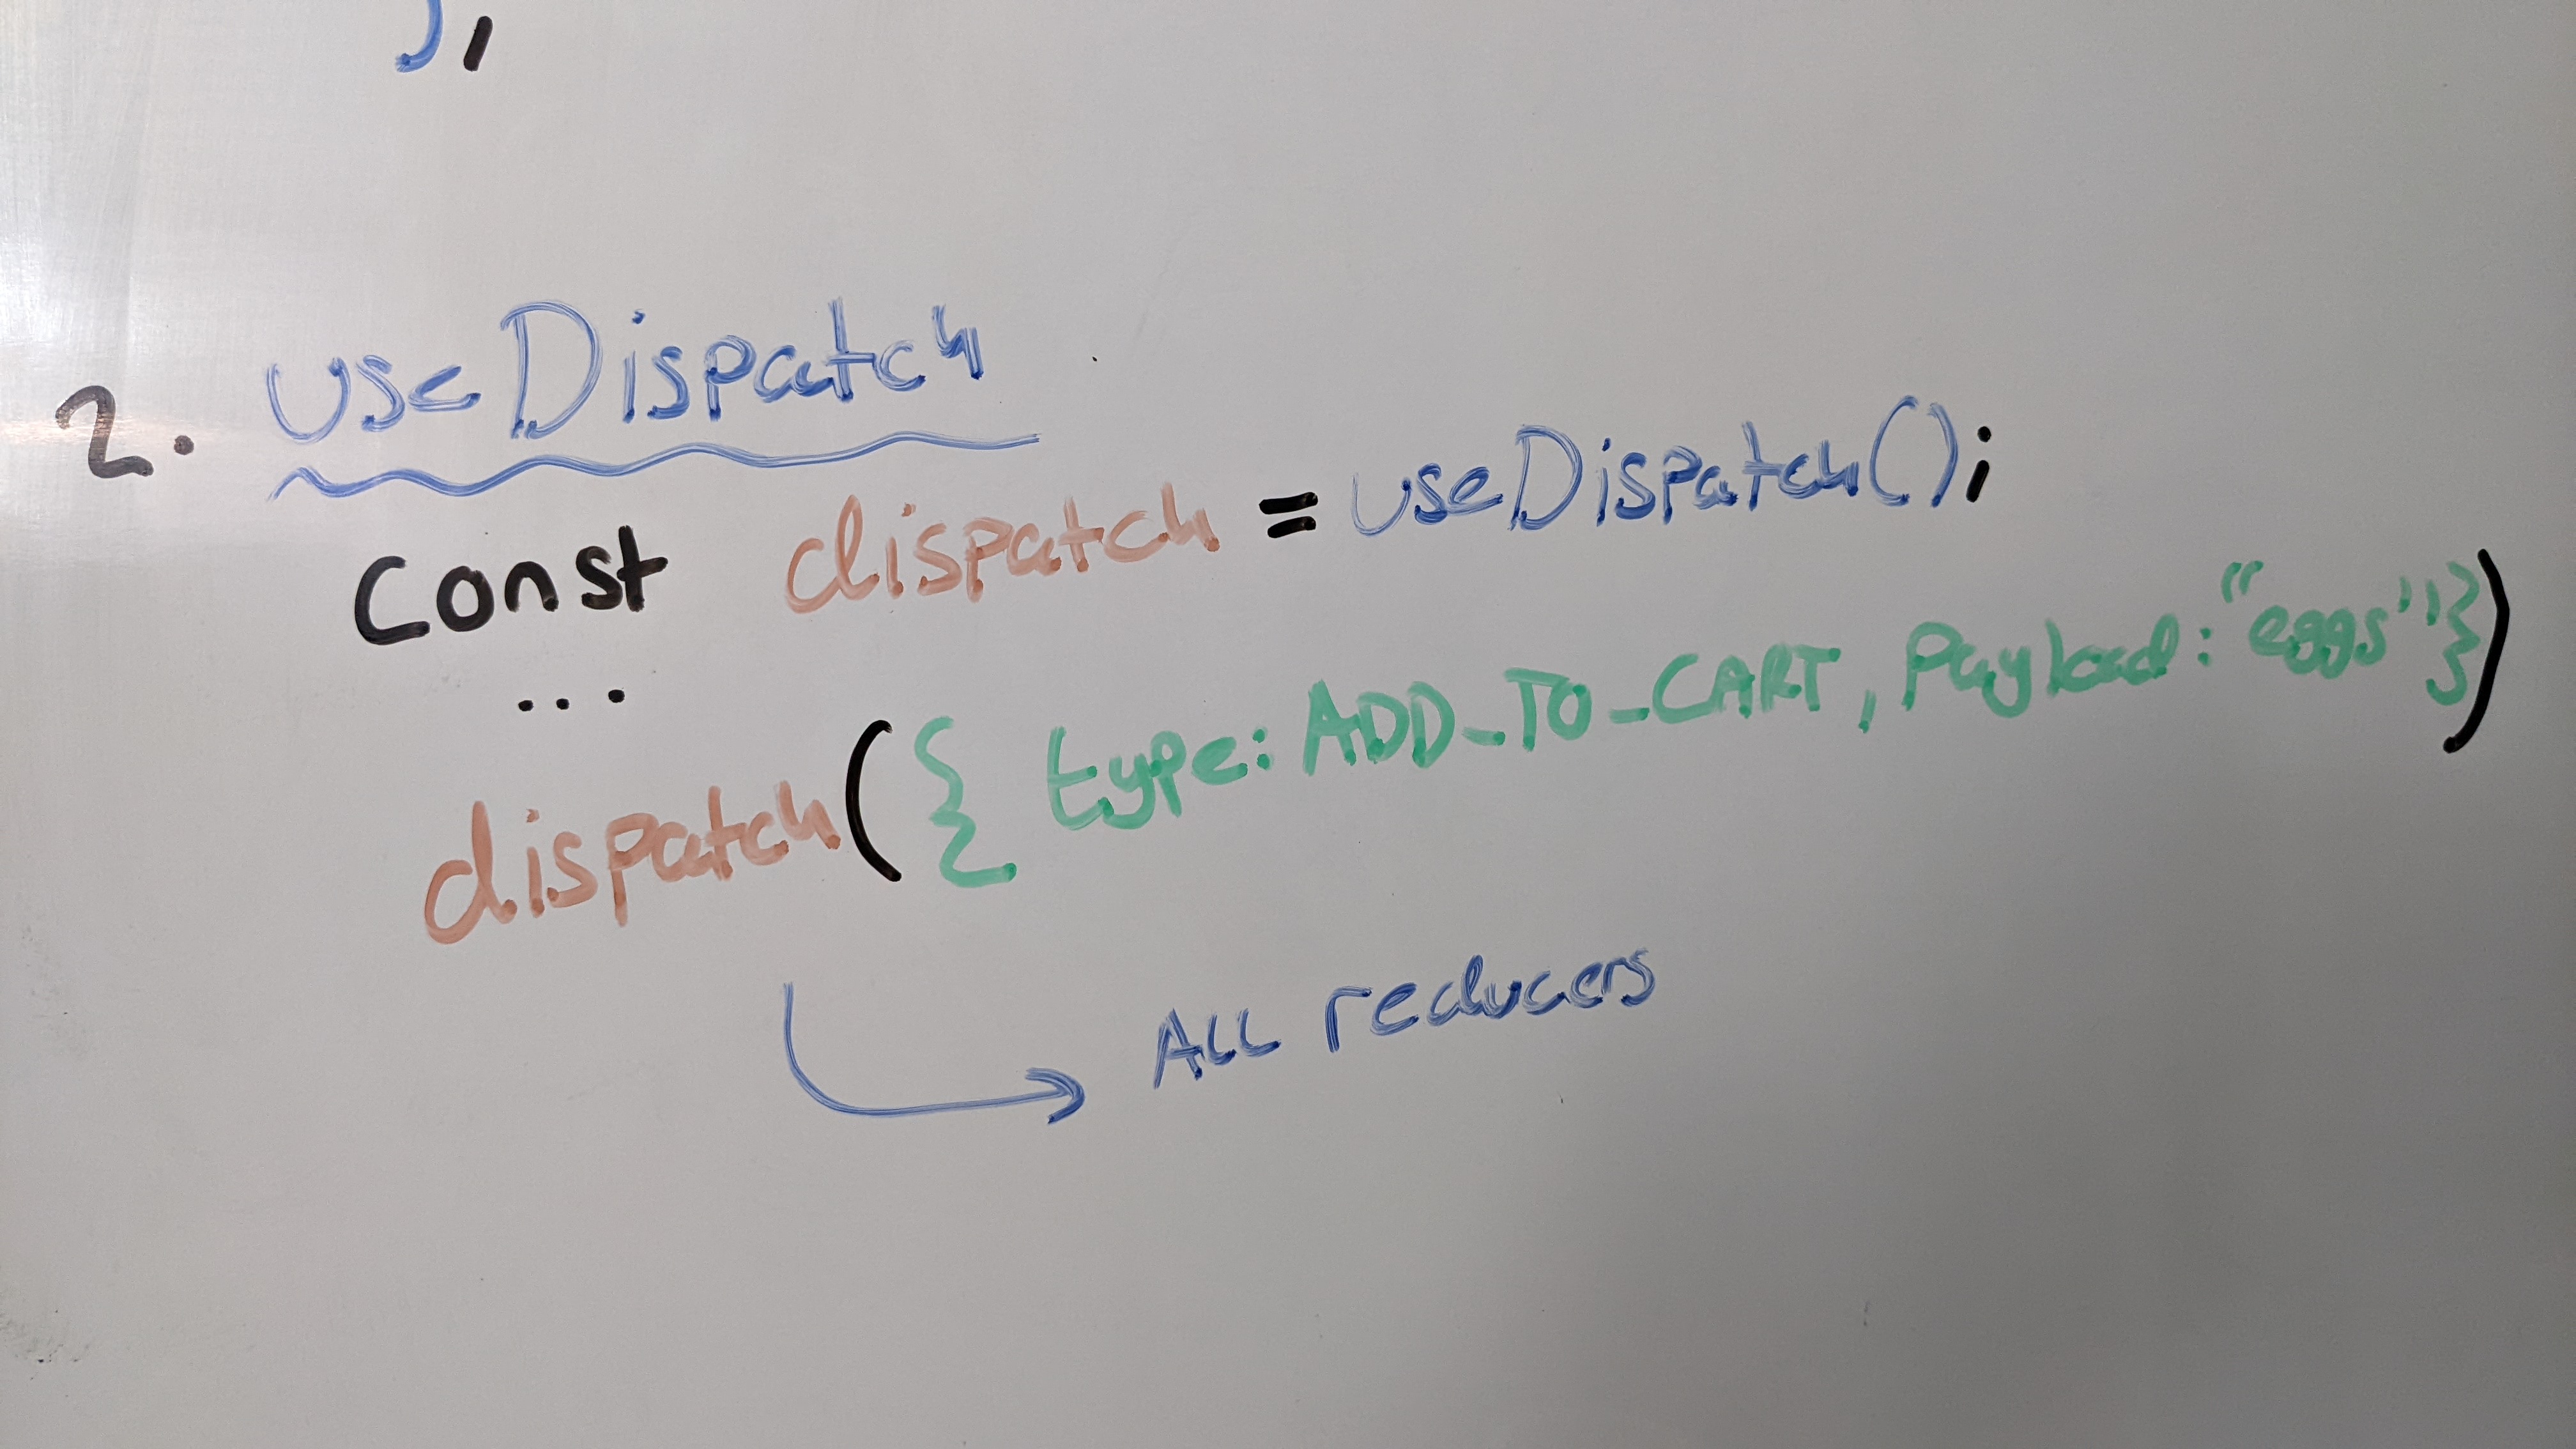 );
2. useDispatch
const dispatch = useDispatch();
...
dispatch({ type: ADD_TO_CART, payload: "eggs"})
All reducers